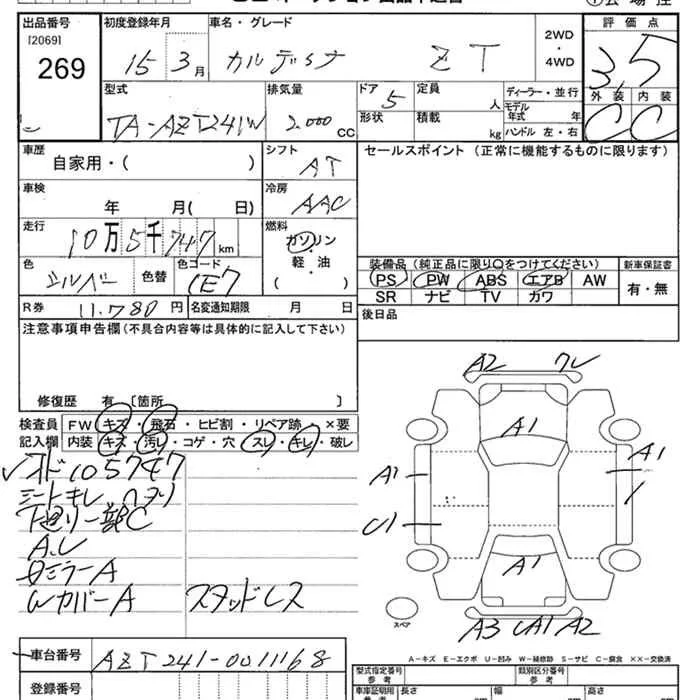 出品番号
[2069]
269
初度登録年月
15 3月
車名・グレード
カルディナ ZT
2WD
・
4WD
評価点
3.5
外装 内装
C C
型式
TA-AZT241W
排気量
2.000 CC
ドア
5
形状
定員
人
積載
kg
ディーラー・並行
モデル
年式 年
ハンドル 左・右
車歴
自家用・( )
シフト
AT
セールスポイント (正常に機能するものに限ります)
車検
年 月( 日)
冷房
AAC
走行
10万5千747km
燃料
ガソリン
・
軽・油
( )
色
シルバー
色替
色コード
1E7
装備品 (純正品に限り○をつけてください)
PS PW ABS エアB AW
SR ナビ TV カワ
新車保証書
有・無
R券
11.780円
名変通知期限 月 日
後日品
注意事項申告欄(不具合内容等は具体的に記入して下さい)
修復歴 有 〔箇所 〕
検査員
記入欄
FW キズ・飛石・ヒビ割・リペア跡 ×要
内装 キズ・汚レ・コゲ・穴・スレ・キレ・破レ
105747
シートキレ
下廻り一部C
ミラーA
WカバーA
スタッドレス
A2
A1
A1
A1
U1
A1
A3 UA1 A2
スペア
A-キズ E-エクボ U-凹み W-補修跡 S-サビ C-腐食 ××-交換済
車台番号
AZT241-0011168
登録番号
型式指定番号
参考
類別区分番号
参考
車庫証明用
参考
長さ cm
幅 cm
高さ cm